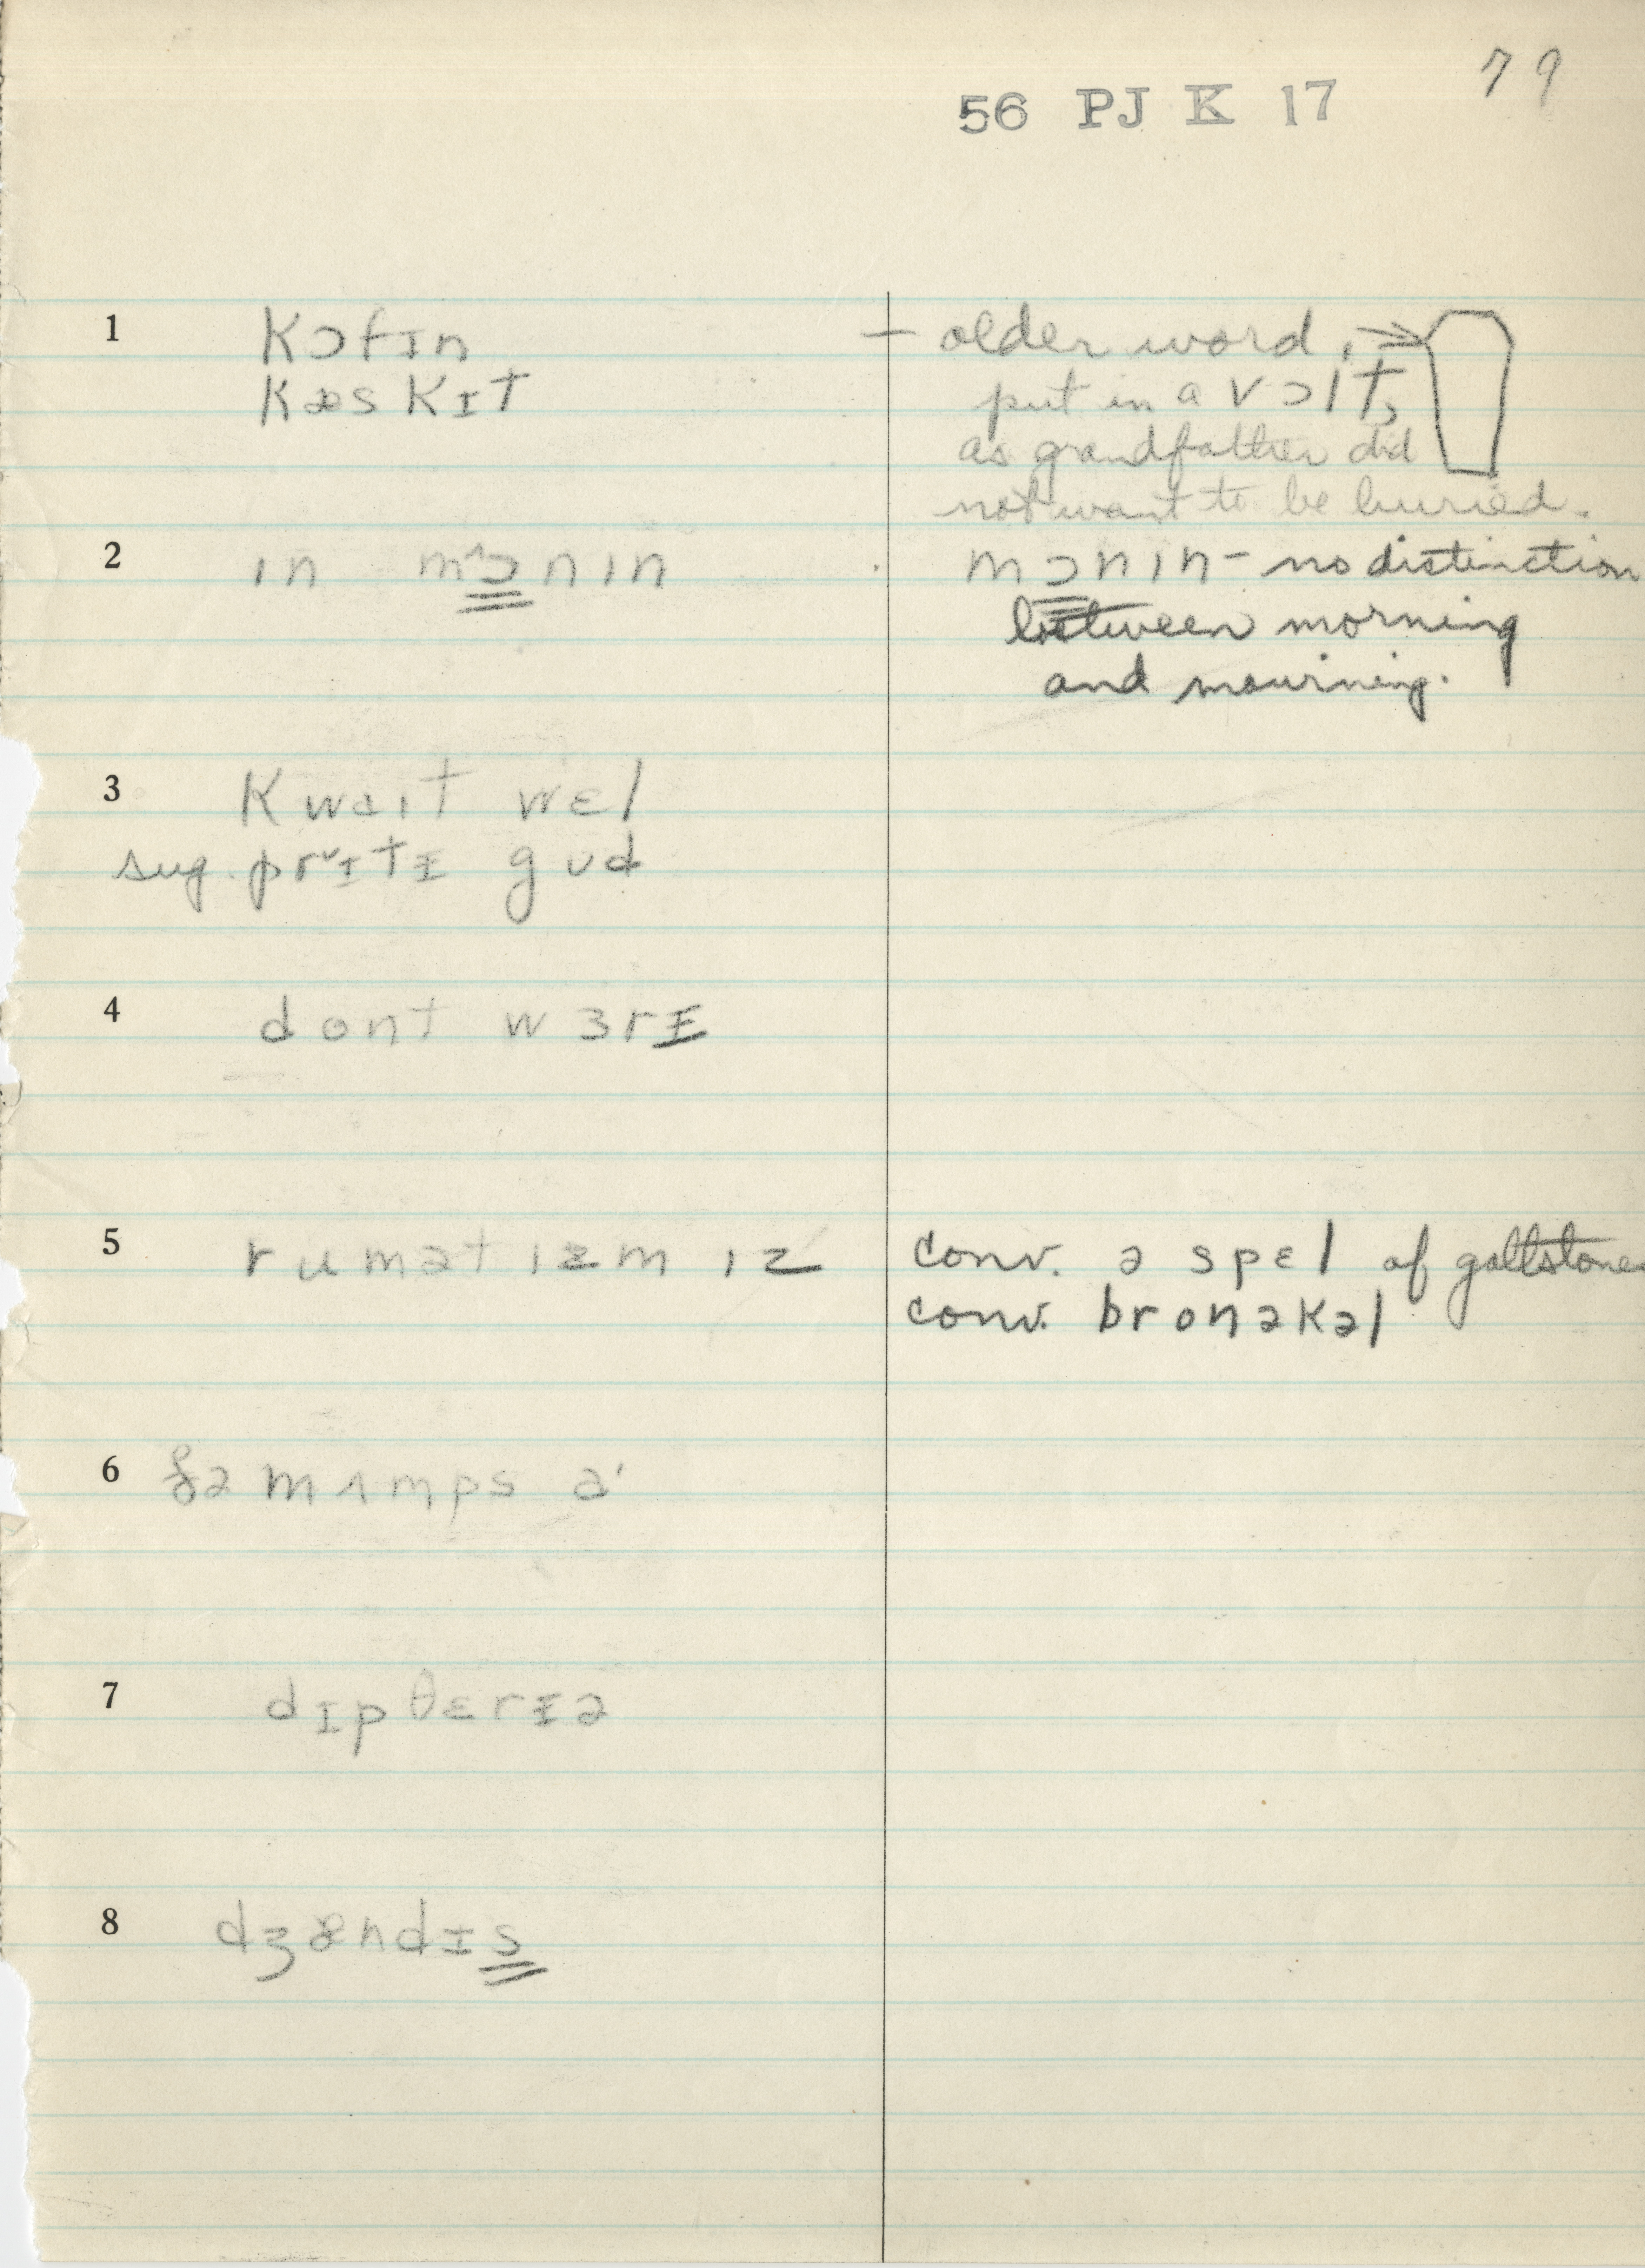 79
56 PJ K 17
1 kɔfɪn — older word,
kæskɪt put in a vɔlt,
as grandfather did
not want to be buried.
2 ɪn mɔnɪn mɔnɪn – no distinction
between morning
and mourning.
3 kwaɪt wɛl
sug. prɪtɪ gud
4 dont wɜrɪ
5 rumətɪzm ɪz conv. ə spɛl of gallstones
conv. bronəkəl
6 ðə mʌmps ə
7 dɪpθɛrɪə
8 dʒændɪs